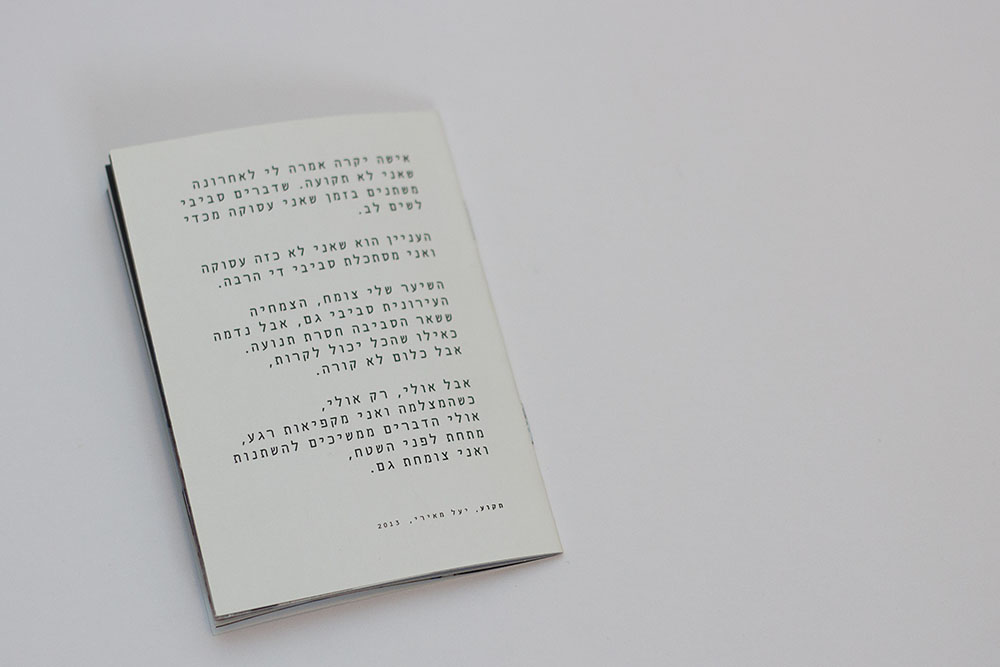 אישה יקרה אמרה לי לאחרונה
שאני לא תקועה. שדברים סביבי
משתנים בזמן שאני עסוקה מכדי
לשים לב.
העניין הוא שאני לא כזה עסוקה
ואני מסתכלת סביבי די הרבה.
השיער שלי צומח, הצמחיה
העירונית סביבי גם, אבל נדמה
ששאר הסביבה חסרת תנועה.
כאילו שהכל יכול לקרות,
אבל כלום לא קורה.
אבל אולי, רק אולי,
כשהמצלמה ואני מקפיאות רגע,
אולי הדברים ממשיכים להשתנות
מתחת לפני השטח,
ואני צומחת גם.
תקוע, יעל מאירי, 2013